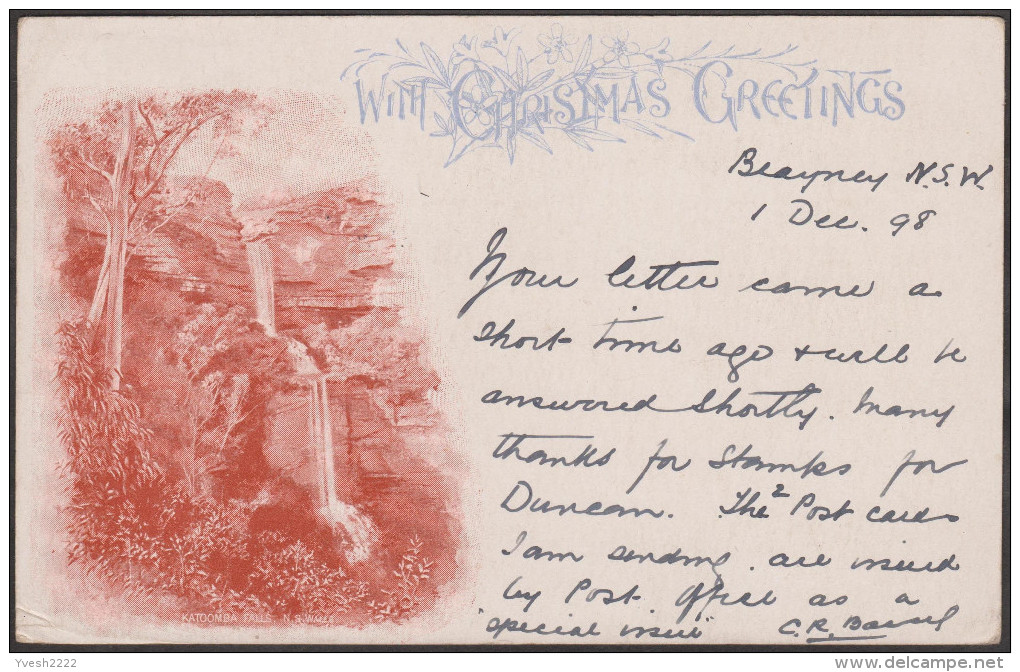 WITH CHRISTMAS GREETINGS
Blayney N.S.W.
1 Dec. 98
Your letter came a
short time ago & will be
answered shortly. Many
thanks for Stamps for
Duncan. The 2 Post cards
I am sending are issued
by Post Office as a
"special issue" C.R.
KATOOMBA FALLS N.S.WALES
Yvesh2222
delcampe.net